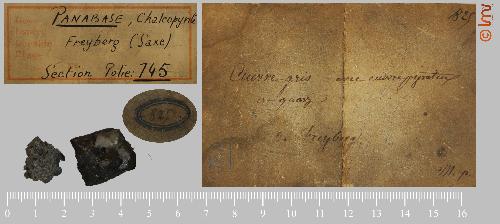 PANABASE, Chalcopyrite
Freyberg (Saxe)
Section Polie: 745
825
825
Cuivre gris avec cuivre pyriteux
et quarz
de Freyberg
M. p.
0 1 2 3 4 5 6 7 8 9 10 11 12 13 14 15 16